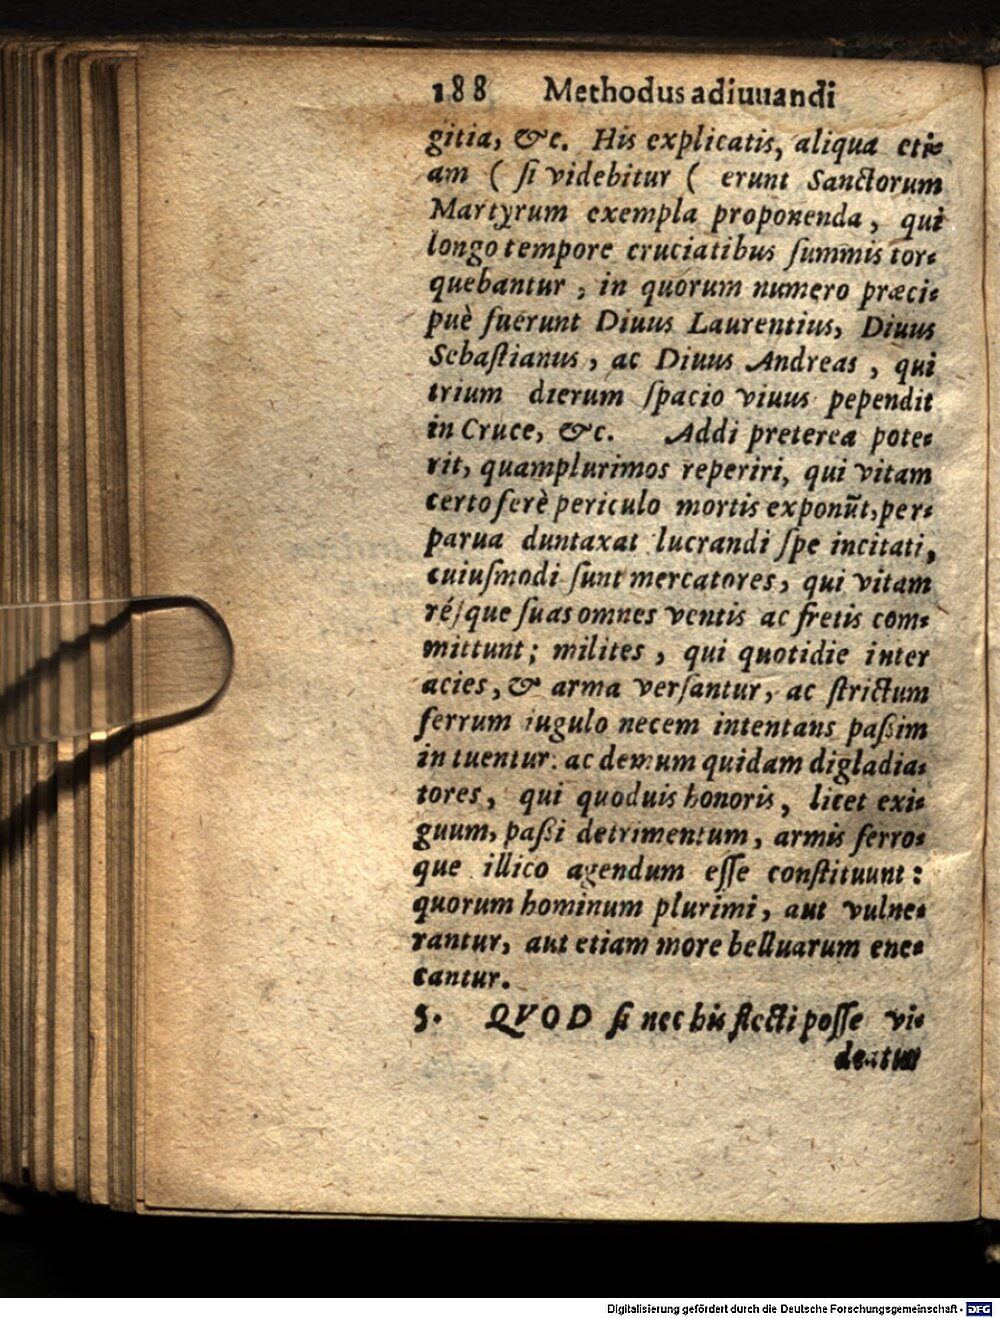 188 Methodus adiuuandi
gitia, &c. His explicatis, aliqua eti-
am ( ſi videbitur ( erunt Sanctorum
Martyrum exempla proponenda, qui
longo tempore cruciatibus ſummis tor-
quebantur, in quorum numero præci-
puè fuerunt Diuus Laurentius, Diuus
Sebaſtianus, ac Diuus Andreas, qui
trium dierum ſpacio viuus pependit
in Cruce, &c. Addi preterea pote-
rit, quamplurimos reperiri, qui vitam
certo ferè periculo mortis exponūt, per-
parua duntaxat lucrandi ſpe incitati,
cuiuſmodi ſunt mercatores, qui vitam
réſque ſuas omnes ventis ac fretis com-
mittunt; milites, qui quotidie inter
acies, & arma verſantur, ac ſtrictum
ferrum iugulo necem intentans paßim
intuentur: ac demum quidam digladia-
tores, qui quoduis honoris, licet exi-
guum, paßi detrimentum, armis ferro-
que illico agendum eſſe conſtituunt:
quorum hominum plurimi, aut vulne-
rantur, aut etiam more belluarum ene-
cantur.
5. QVOD ſi nec his flecti poſſe vi-
deatur
Digitalisierung gefördert durch die Deutsche Forschungsgemeinschaft - DFG